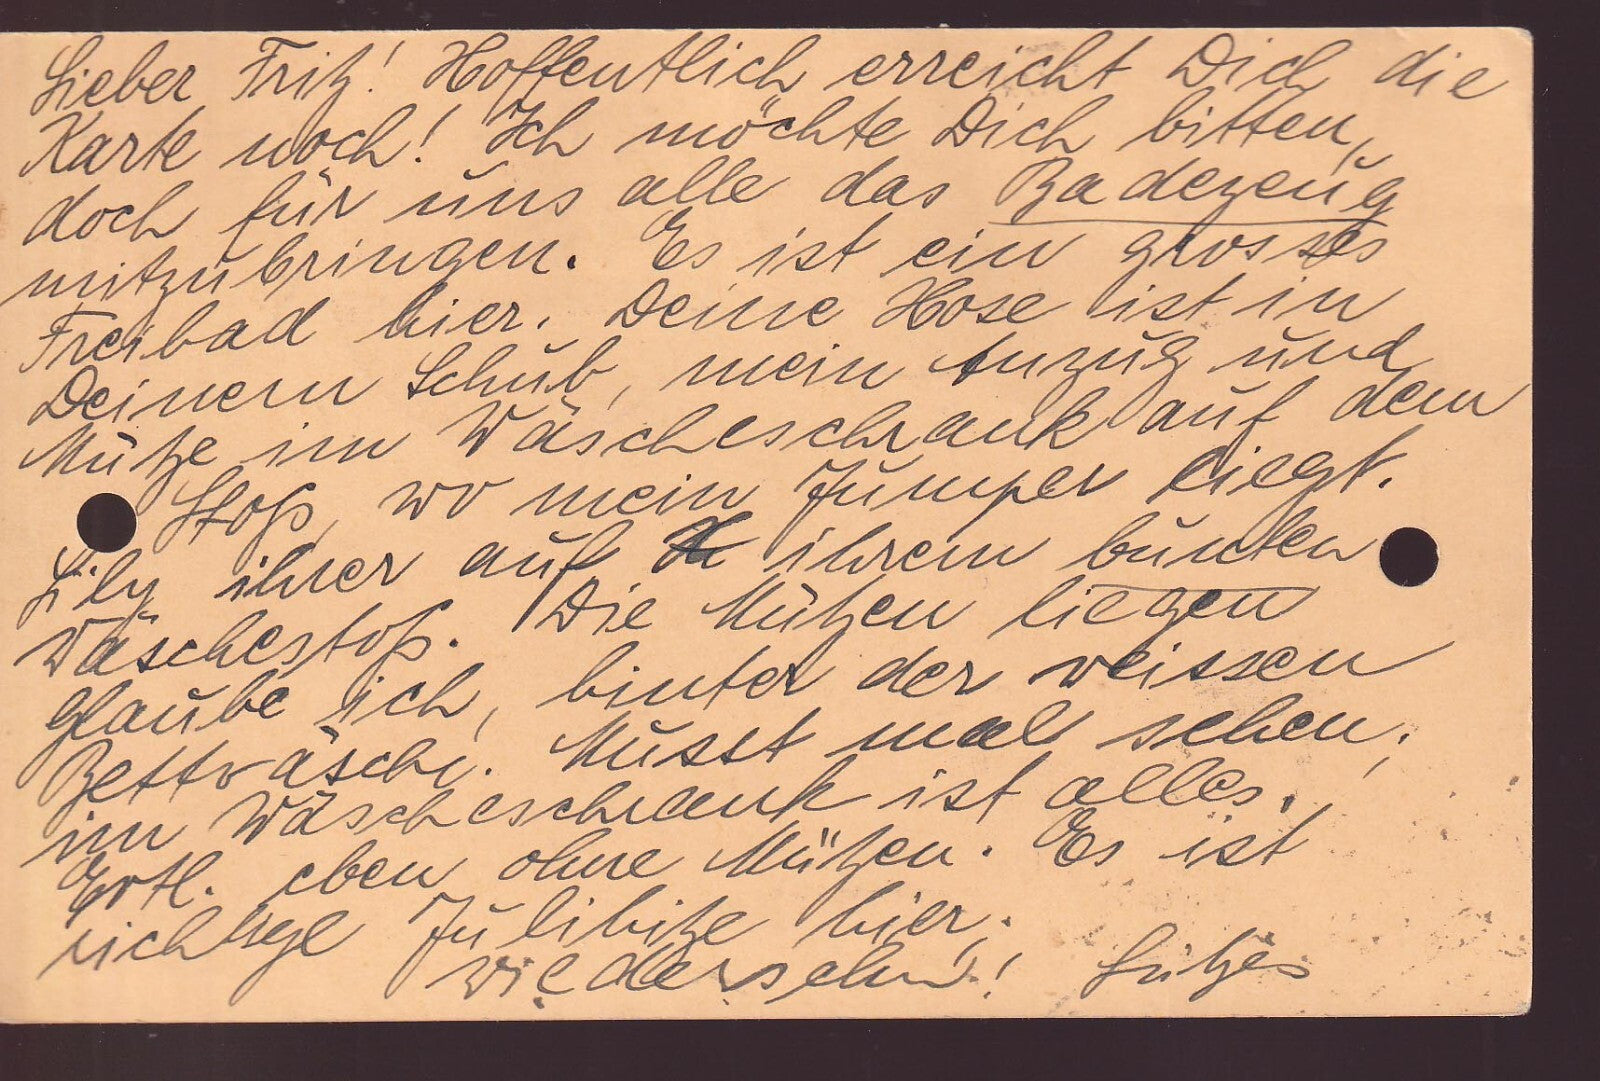 Lieber Fritz! Hoffentlich erreicht Dich die
Karte noch! Ich möchte Dich bitten,
doch für uns alle das Badezeug
mitzubringen. Es ist ein grosses
Freibad hier. Deine Hose ist in
Deinem Schub, mein Anzug und
Mütze im Wäscheschrank auf dem
Stoß, wo mein Jumper liegt.
Lily ihrer auf ihrem bunten
Wäschestoß. Die Mützen liegen
glaube ich, hinter der weissen
Bettwäsche. Musst mal sehen,
im Wäscheschrank ist alles.
Evtl. eben ohne Mützen. Es ist
richtige Julihitze hier.
Wiedersehn!